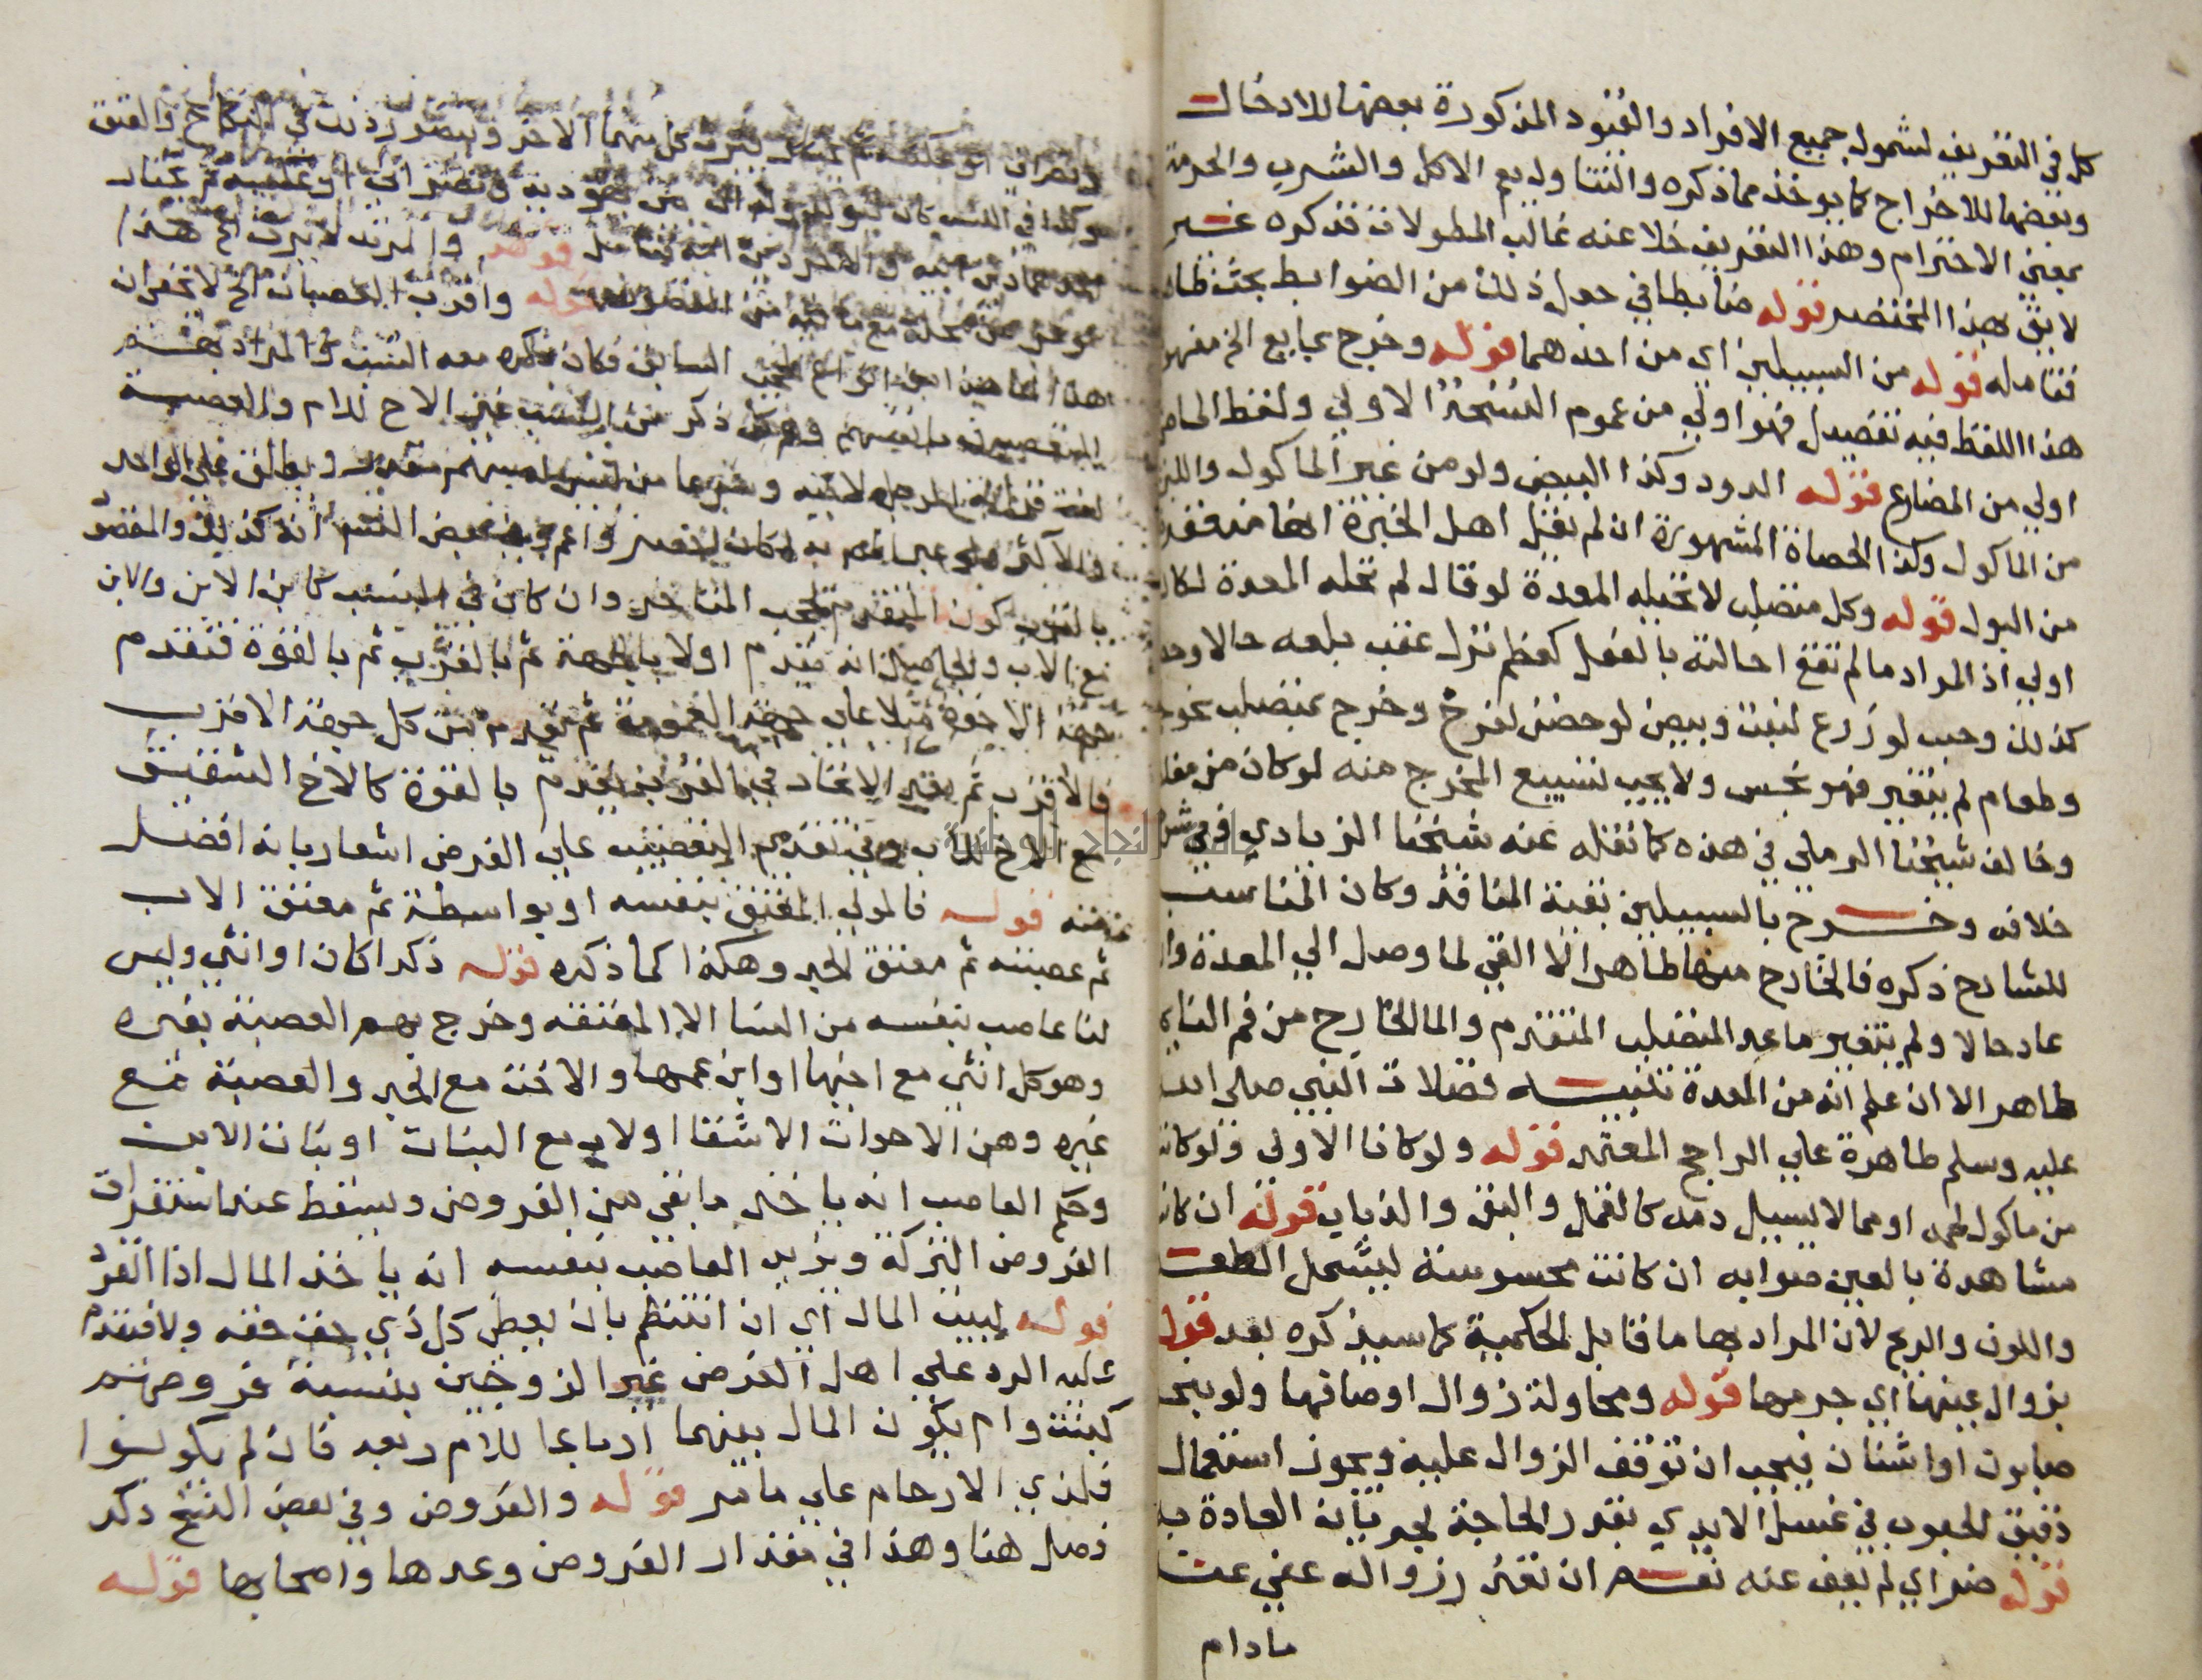 كل في التعريف لشمول جميع الافراد والقيود المذكورة بعضها للادخال
وبعضها للاخراج كما يوخذ مما ذكره والتناول يعم الاكل والشرب والحرمة
بمعنى الاحترام وهذا التعريف خلا عنه غالب المطولات فذكره غير
لايق بهذا المختصر قوله ضابطا في حول ذلك من الضوابط بحث ظاهر
فتامله قوله من السبيلين اي من احدهما قوله وخرج بمايع الخ مفهوم
هذا اللفظ فيه تفصيل فهو اولي من عموم النسخة الاولي ولفظ الماضي
اولي من المضارع قوله الدود وكذا البيض ولو من غير الماكول واللبن
من الماكول وكذا الحصاة المشهورة ان لم يقل اهل الخبرة انها منعقدة
من البول قوله وكل متصلب لا تحيله المعدة لو قال لم تحله المعدة لكان
اولي اذ المراد ما لم تقع احالته بالفعل كعظم نزل عقب بلعه حالا وحده
كذلك وحب لو زرع لنبت وبيض لو حضن لفرخ وخرج بمتصلب نحو
وطعام لم يتغير فهو نجس ولا يجب تسبيع المخرج منه لو كان من مغلظ
وخالف شيخنا الرملي في هذه كما نقله عنه شيخنا الزيادي وفي شرحه
خلافه وخرج بالسبيلين بقية المنافذ وكان المناسب
للشارح ذكره فالخارج منها طاهر الا القي لما وصل الي المعدة وان
عاد حالا ولم يتغير ما عدا المتصلب المتقدم والما الخارج من فم النايم
طاهر الا ان علم انه من المعدة تنبيه فضلات النبي صلى الله
عليه وسلم طاهرة علي الراجح المعتمد قوله ولو كانا الاولي ولو كانت
من ماكول لحمه او مما لا يسيل دمه كالقمل والبق والذباب قوله ان كانت
مشاهدة بالعين صوابه ان كانت محسوسة ليشمل الطعم
واللون والريح لان المراد بها ما قابل الحكمية كما سيذكره بعد قوله
بزوال عينها اي جرمها قوله ومحاولة زوال اوصافها ولو بنحو
صابون او اشنان فيجب ان توقف الزوال عليه ويجوز استعمال
دقيق الحبوب في غسل الايدي بقدر الحاجة لجريان العادة به
قوله ضر اي لم يعف عنه نعم ان تعذر زواله عفي عنه
مادام
كل منهما الاخر ويتصور ذلك في النكاح والعتق
وكذا في النسب
قوله والمرتد لا يرث الخ هذا
قوله واقرب العصبات الخ لا يخفى ان
السابق فكان ذكره معه انسب والمراد بهم
المتعصبون بانفسهم وهم كل ذكر من النسب غير الاخ للام والعصبة
لغة قرابة الرجل لابيه وشرعا من ليس له سهم مقدر ويطلق علي الواحد
والاكثر ولو عبر به لكان اخصر واعم وفي بعض النسخ انه كذلك والمقصود
بالقرب كون المتقدم يحجب المتاخر وان كان في النسب كابن الابن والابن
مع الاب والحاصل انه يقدم اولا بالجهة ثم بالقرب ثم بالقوة فتقدم
جهة الاخوة مثلا علي جهة العمومة ثم يقدم من كل جهة الاقرب
فالاقرب ثم بعد الاتحاد في القرب يقدم بالقوة كالاخ الشقيق
مع الاخ للاب وفي تقديم التعصيب علي الفرض اشعار بانه افضل
منه قوله فالمولي المعتق بنفسه او بواسطة ثم معتق الاب
ثم عصبته ثم معتق الجد وهكذا كما ذكره قوله ذكرا كان او انثي وليس
لنا عاصب بنفسه من النسا الا المعتقة وخرج بهم العصبة بغيره
وهو كل انثي مع اخيها او ابن عمها والاخت مع الجد والعصبة مع
غيره وهن الاخوات الاشقا اولاب مع البنات او بنات الابن
وحكم العاصب انه ياخذ ما بقي من الفروض ويسقط عند استغراق
الفروض التركة ويزيد العاصب بنفسه انه ياخذ المال اذا انفرد
قوله لبيت المال اي ان انتظم بان يعطي كل ذي حق حقه ولا فتقدم
عليه الرد علي اهل الفرض غير الزوجين بنسبة فروضهم
كبنت وام يكون المال بينهما ارباعا للام ربعه فان لم يكونوا
فلذي الارحام علي ما مر قوله والفروض وفي بعض النسخ ذكر
فصل هنا وهذا في مقدار الفروض وعددها واصحابها قوله